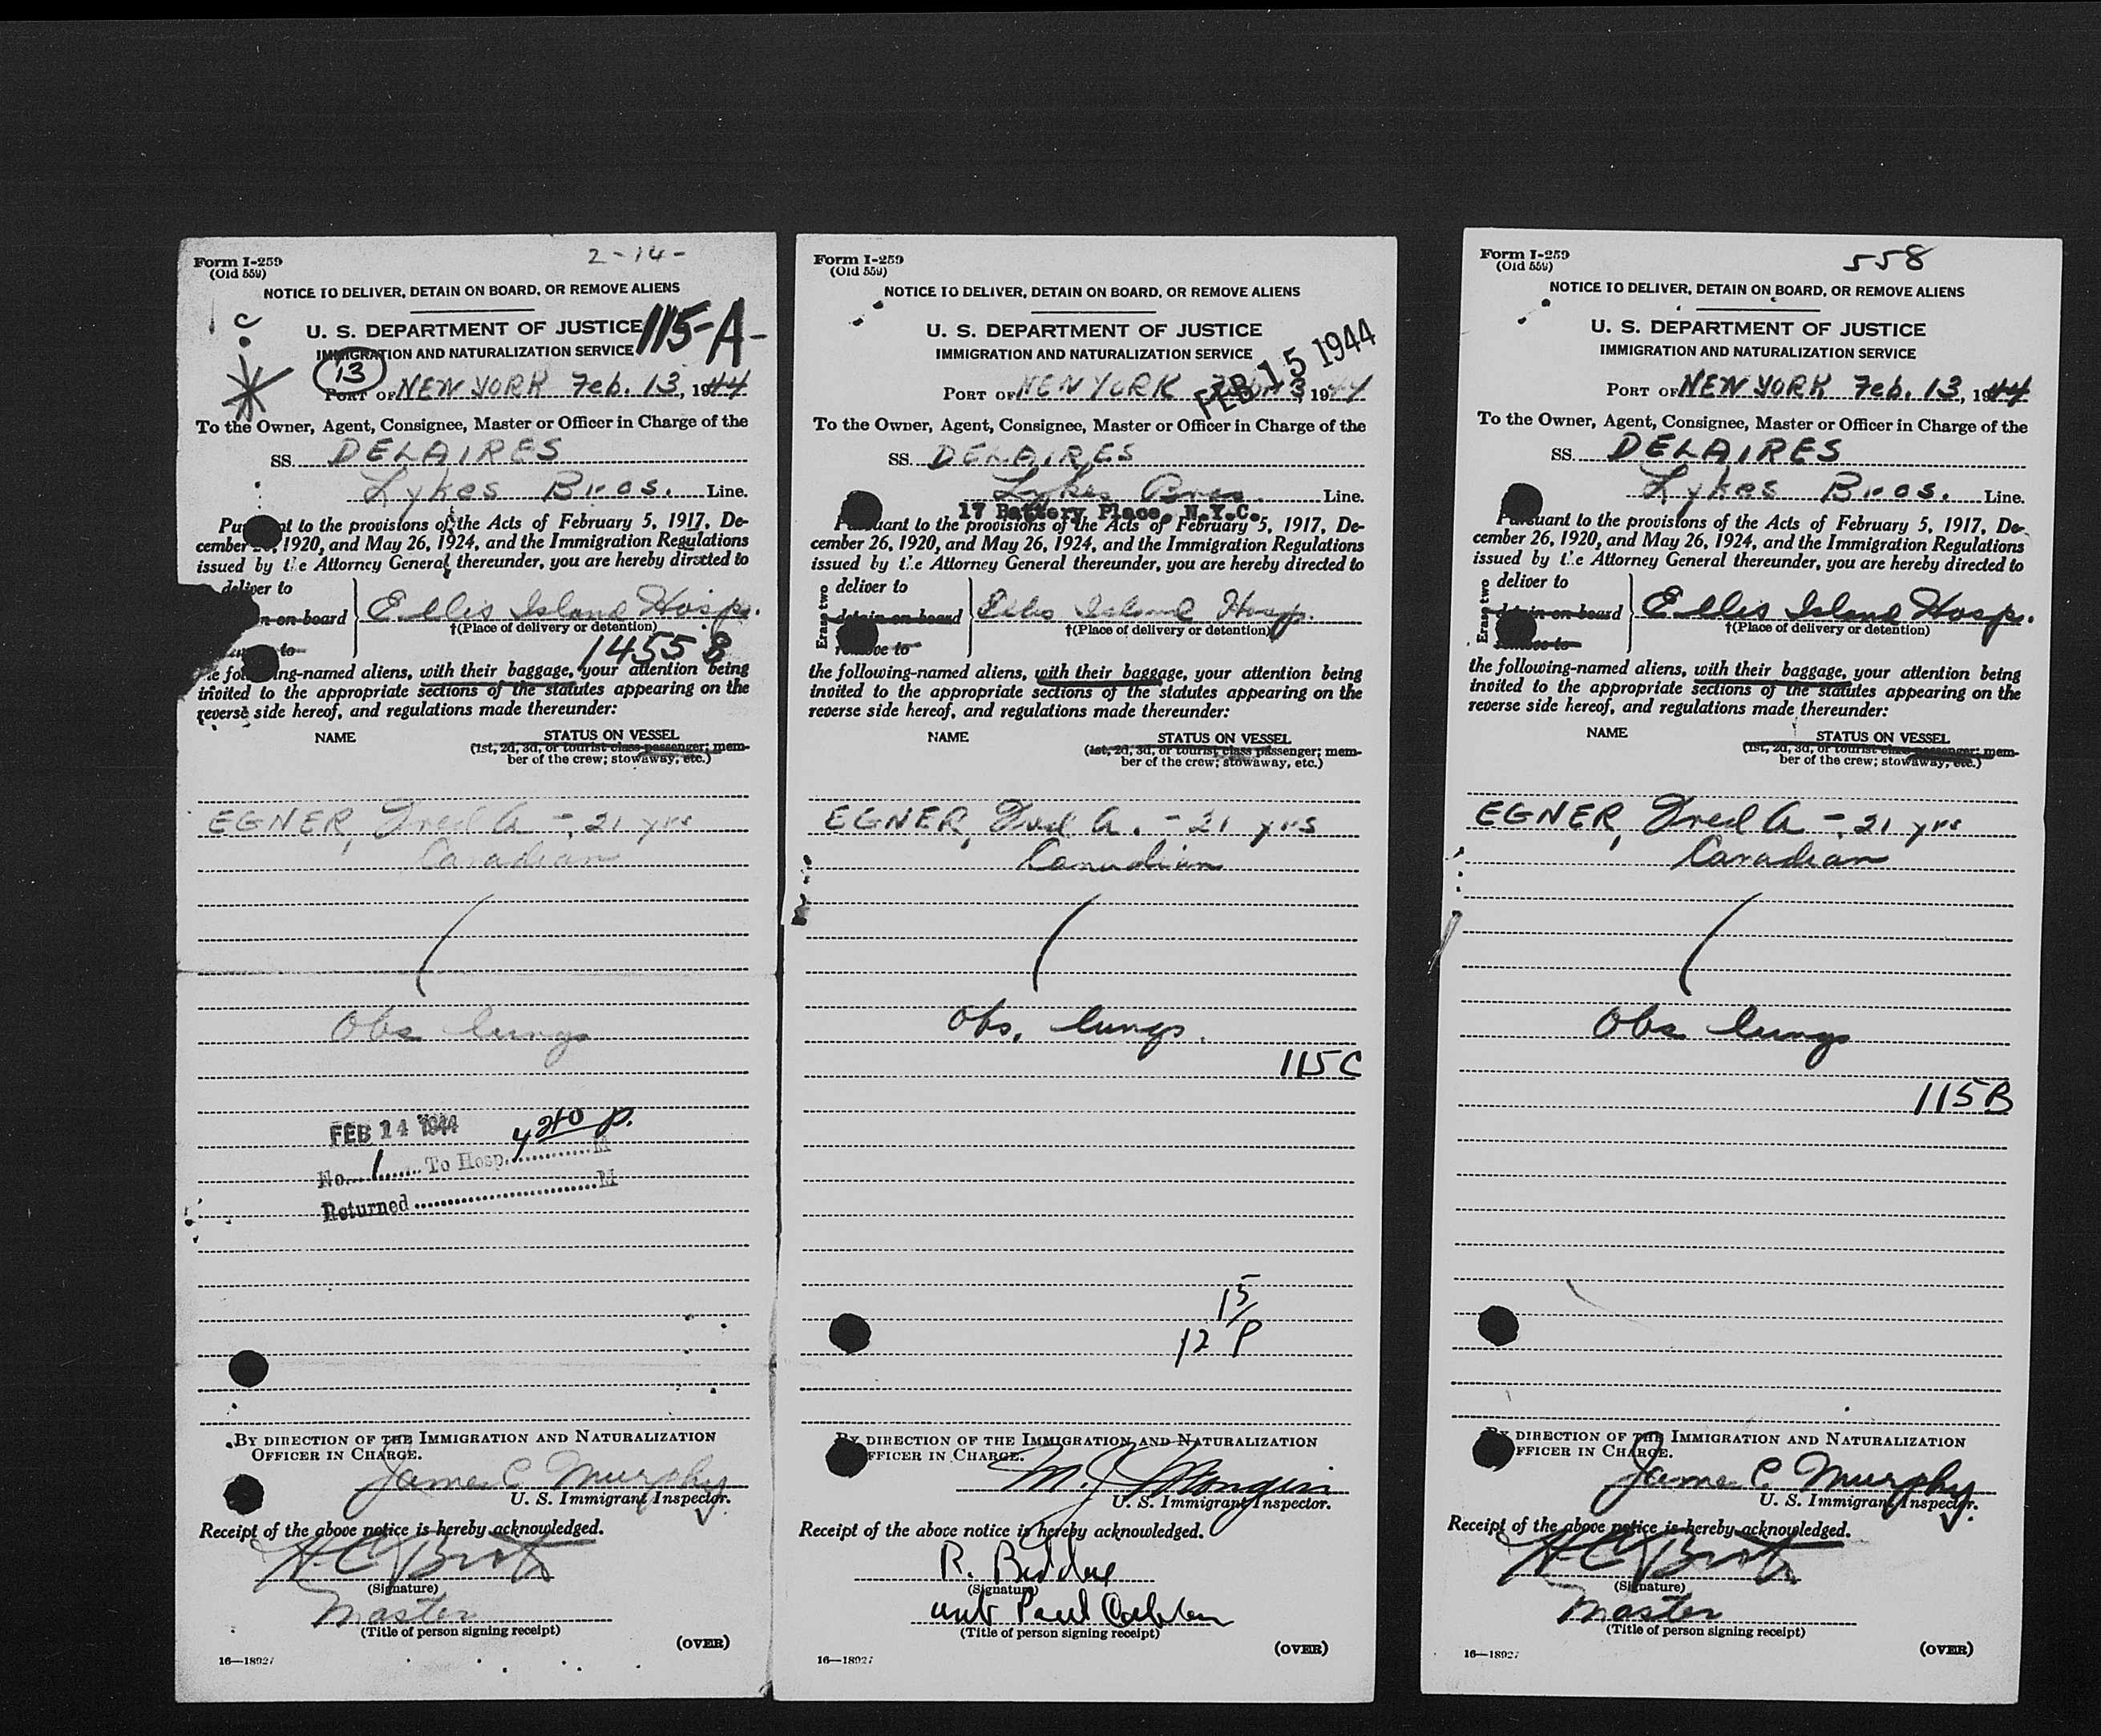 Form I-259
(Old 559)
2-14-
NOTICE TO DELIVER, DETAIN ON BOARD, OR REMOVE ALIENS
U. S. DEPARTMENT OF JUSTICE
115-A-
IMMIGRATION AND NATURALIZATION SERVICE
13
PORT OF NEW YORK Feb. 13, 1944
To the Owner, Agent, Consignee, Master or Officer in Charge of the
SS. DELAIRES
Lykes Bros. Line.
Pu nt to the provisions of the Acts of February 5, 1917, De-
cember 26, 1920, and May 26, 1924, and the Immigration Regulations
issued by the Attorney General thereunder, you are hereby directed to
deliver to
n on board
Ellis Island Hosp.
†(Place of delivery or detention)
to
1455 B
the following-named aliens, with their baggage, your attention being
invited to the appropriate sections of the statutes appearing on the
reverse side hereof, and regulations made thereunder:
NAME STATUS ON VESSEL
(1st, 2d, 3d, or tourist class passenger; mem-
ber of the crew; stowaway, etc.)
EGNER, Fred A - 21 yrs
Canadian
Obs lungs
FEB 14 1944
No. 1 To Hosp. 4 20 P. M
Returned M
BY DIRECTION OF THE IMMIGRATION AND NATURALIZATION
OFFICER IN CHARGE.
James C. Murphy
U. S. Immigrant Inspector.
Receipt of the above notice is hereby acknowledged.
(Signature)
Master
(Title of person signing receipt)
(OVER)
16—18927
Form I-259
(Old 559)
NOTICE TO DELIVER, DETAIN ON BOARD, OR REMOVE ALIENS
U. S. DEPARTMENT OF JUSTICE
IMMIGRATION AND NATURALIZATION SERVICE
FEB 15 1944
PORT OF NEW YORK 13, 1944
To the Owner, Agent, Consignee, Master or Officer in Charge of the
SS. DELAIRES
Lykes Bros. Line.
17 Battery Place, N.Y.C.
Pursuant to the provisions of the Acts of February 5, 1917, De-
cember 26, 1920, and May 26, 1924, and the Immigration Regulations
issued by the Attorney General thereunder, you are hereby directed to
Erase two
deliver to
detain on board
Ellis Island Hosp.
†(Place of delivery or detention)
remove to
the following-named aliens, with their baggage, your attention being
invited to the appropriate sections of the statutes appearing on the
reverse side hereof, and regulations made thereunder:
NAME STATUS ON VESSEL
(1st, 2d, 3d, or tourist class passenger; mem-
ber of the crew; stowaway, etc.)
EGNER, Fred A. - 21 yrs
Canadian
Obs. lungs.
115C
15/
12 P
BY DIRECTION OF THE IMMIGRATION AND NATURALIZATION
OFFICER IN CHARGE.
U. S. Immigrant Inspector.
Receipt of the above notice is hereby acknowledged.
R.
(Signature)
Paul
(Title of person signing receipt)
(OVER)
16—18927
Form I-259
(Old 559)
558
NOTICE TO DELIVER, DETAIN ON BOARD, OR REMOVE ALIENS
U. S. DEPARTMENT OF JUSTICE
IMMIGRATION AND NATURALIZATION SERVICE
PORT OF NEW YORK Feb. 13, 1944
To the Owner, Agent, Consignee, Master or Officer in Charge of the
SS. DELAIRES
Lykes Bros. Line.
Pursuant to the provisions of the Acts of February 5, 1917, De-
cember 26, 1920, and May 26, 1924, and the Immigration Regulations
issued by the Attorney General thereunder, you are hereby directed to
Erase two
deliver to
detain on board
Ellis Island Hosp.
†(Place of delivery or detention)
remove to
the following-named aliens, with their baggage, your attention being
invited to the appropriate sections of the statutes appearing on the
reverse side hereof, and regulations made thereunder:
NAME STATUS ON VESSEL
(1st, 2d, 3d, or tourist class passenger; mem-
ber of the crew; stowaway, etc.)
EGNER, Fred A - 21 yrs
Canadian
Obs lungs
115B
BY DIRECTION OF THE IMMIGRATION AND NATURALIZATION
OFFICER IN CHARGE.
James C. Murphy
U. S. Immigrant Inspector.
Receipt of the above notice is hereby acknowledged.
(Signature)
Master
(Title of person signing receipt)
(OVER)
16—18927